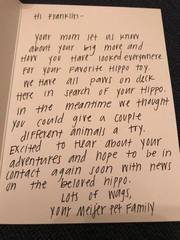 Hi Franklin-
your mom let us know
about your big move and
how you have looked everywhere
for your favorite Hippo toy.
We have all paws on deck
here in search of your Hippo.
in the meantime we thought
you could give a couple
different animals a try.
Excited to hear about your
adventures and hope to be in
contact again soon with news
on the beloved hippo.
Lots of wags,
your Meijer Pet Family